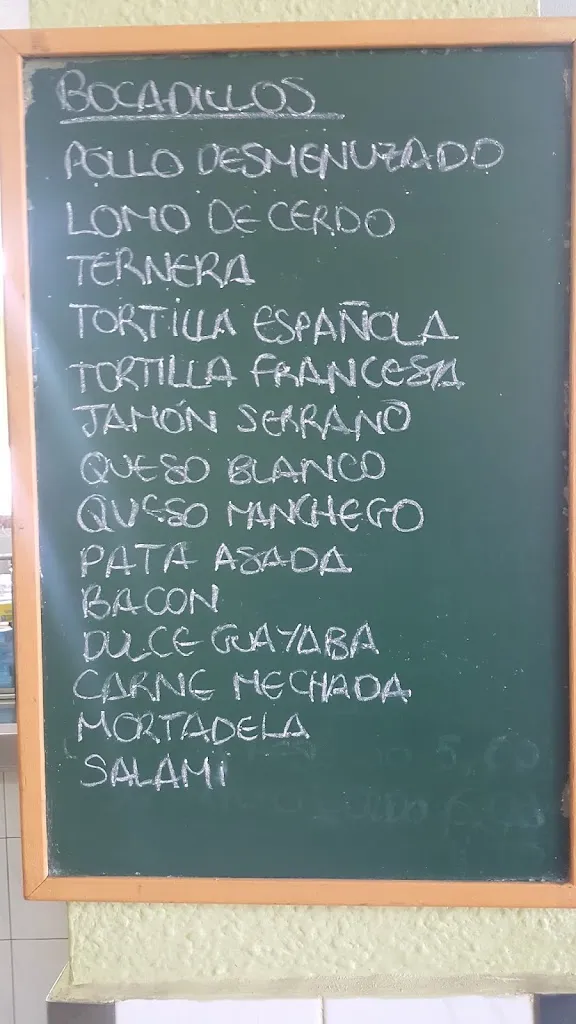 BOCADILLOS
POLLO DESMENUZADO
LOMO DE CERDO
TERNERA
TORTILLA ESPAÑOLA
TORTILLA FRANCESA
JAMÓN SERRANO
QUESO BLANCO
QUESO MANCHEGO
PATA ASADA
BACON
DULCE GUAYABA
CARNE MECHADA
MORTADELA
SALAMI